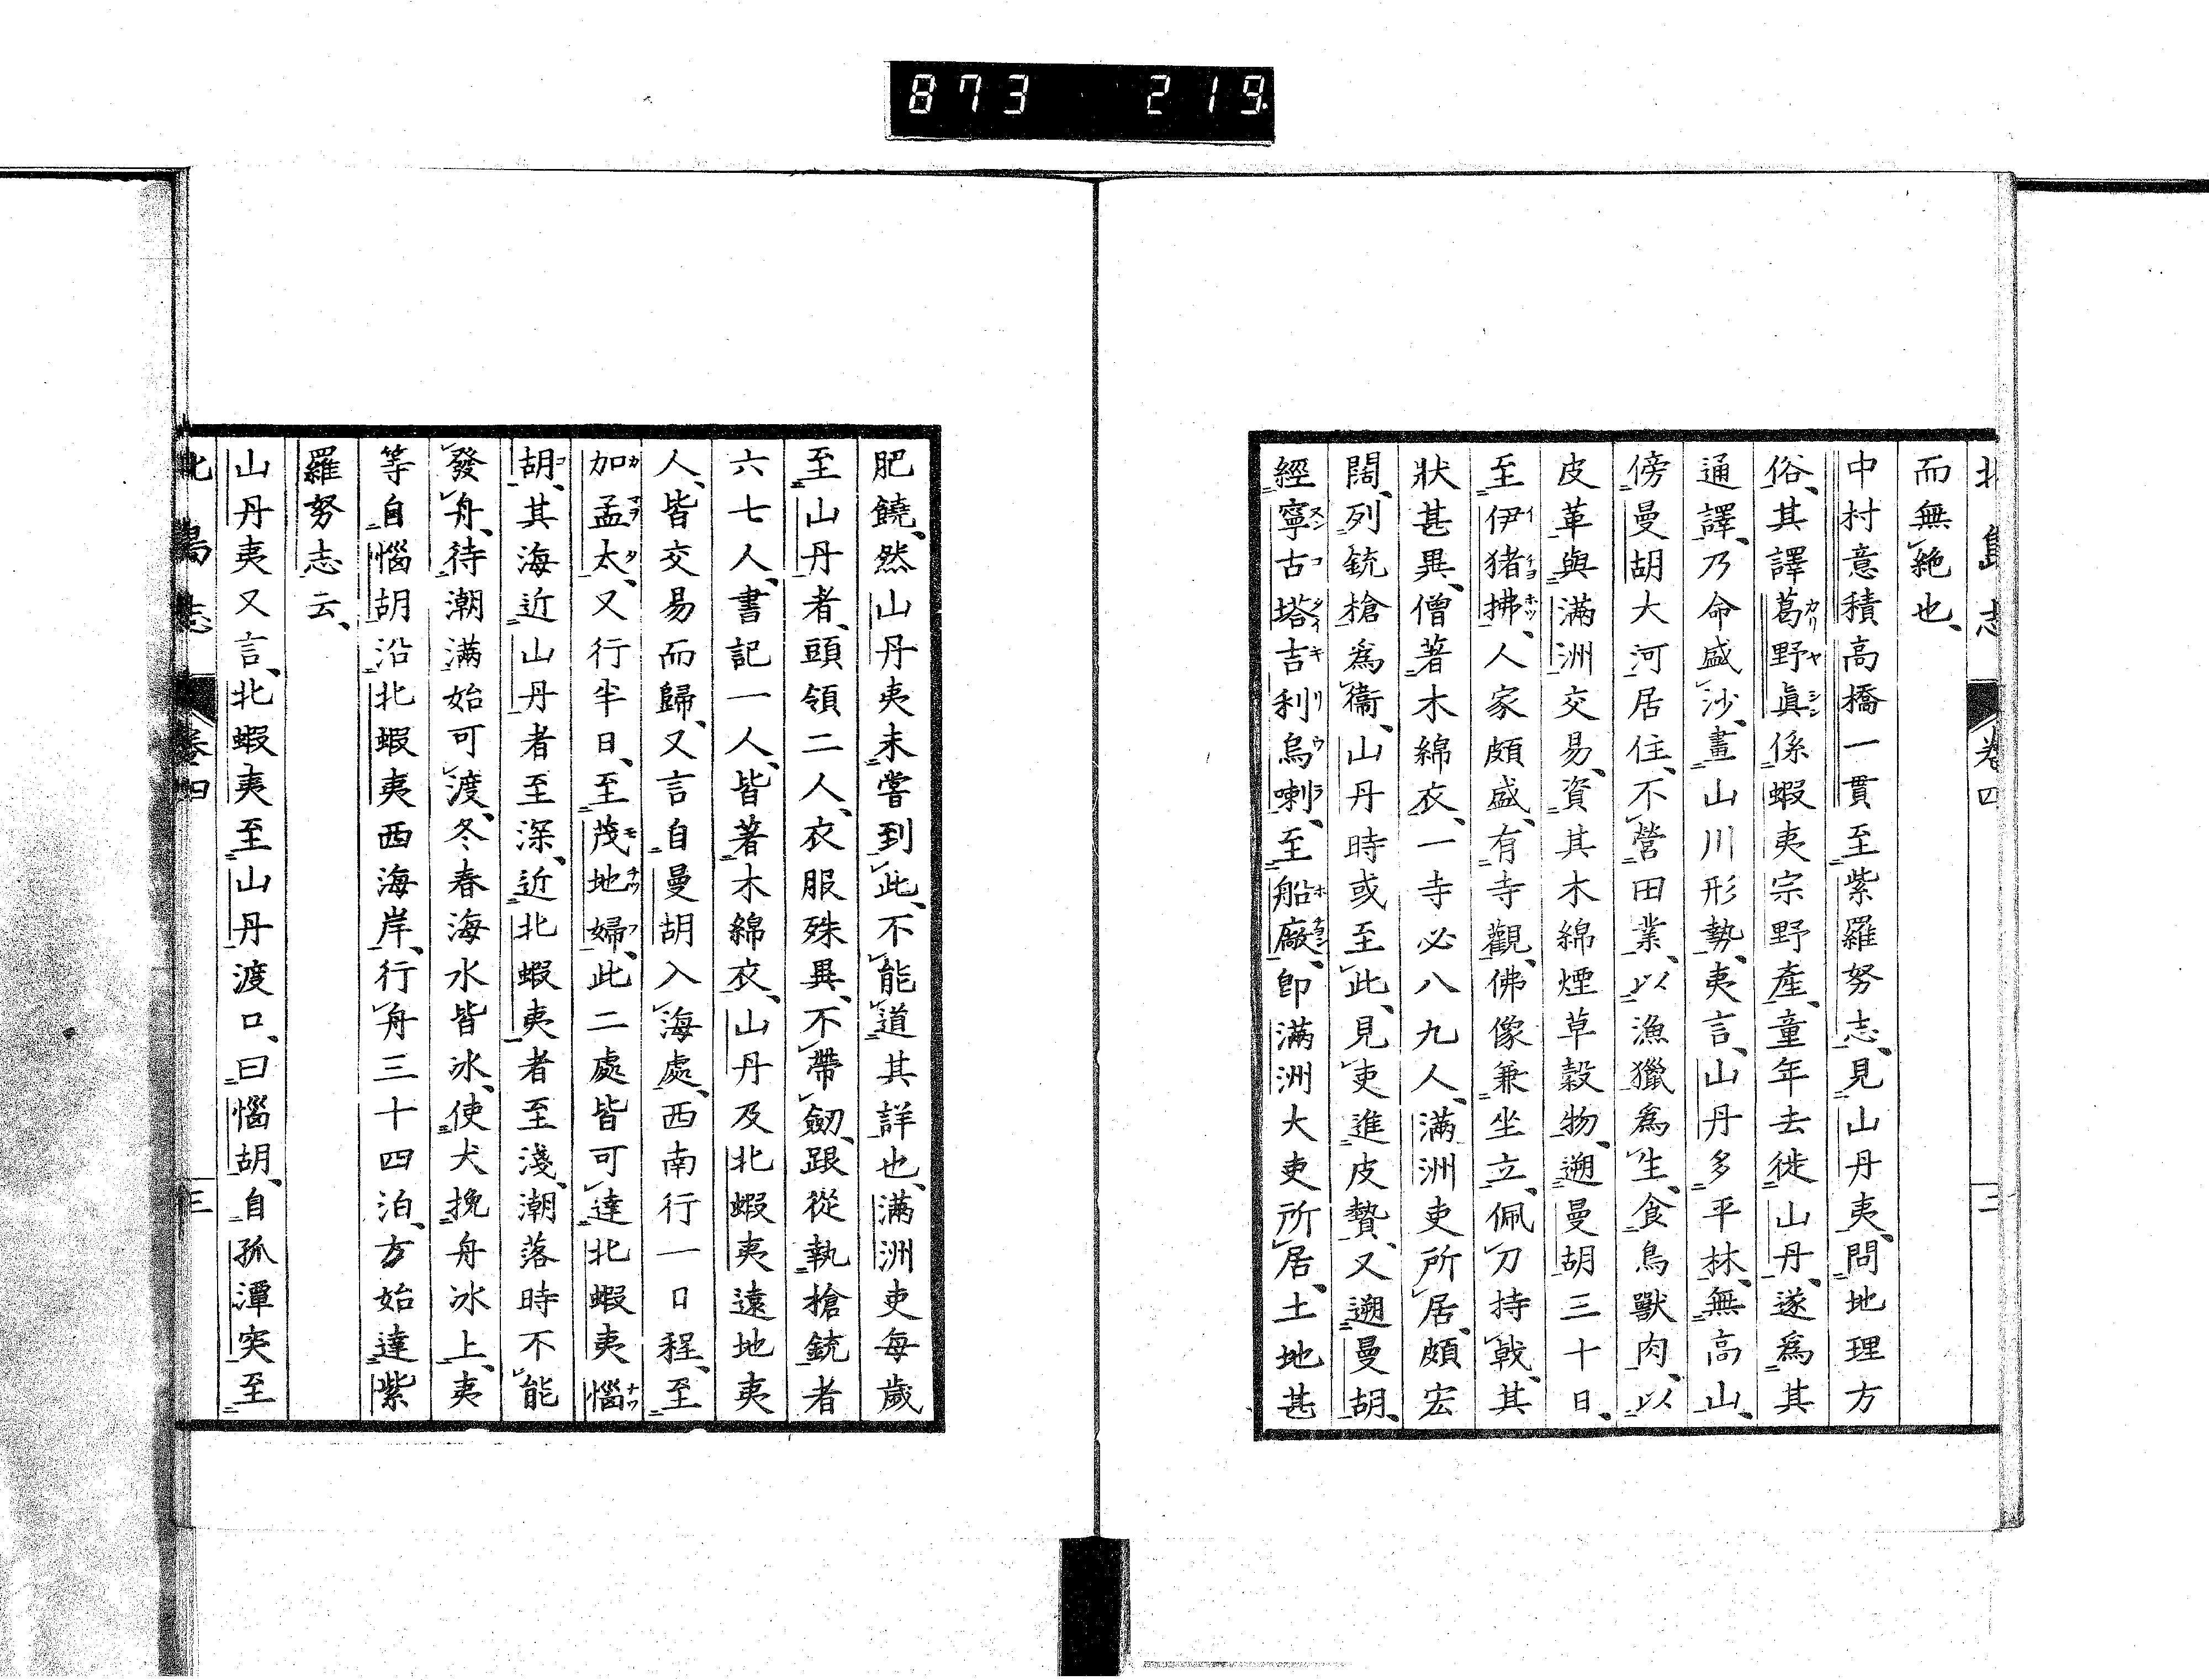 873 219
北島志 卷四 二
而無絶也、
中村意積高橋一貫至紫羅努志、見山丹夷、問地理方
俗、其譯葛野眞係蝦夷宗野產、童年去徙山丹、遂爲其
通譯、乃命盛沙、畫山川形勢、夷言、山丹多平林、無高山、
傍曼胡大河居住、不營田業、以漁獵爲生、食鳥獸肉、以
皮革與滿洲交易、資其木綿煙草穀物、遡曼胡三十日、
至伊猪拂、人家頗盛、有寺觀、佛像兼坐立、佩刀持戟、其
狀甚異、僧著木綿衣、一寺必八九人、滿洲吏所居、頗宏
闊、列銃槍爲衞、山丹時或至此、見吏進皮贄、又遡曼胡、
經寧古塔吉利烏喇、至船廠、卽滿洲大吏所居、土地甚
肥饒、然山丹夷未嘗到此、不能道其詳也、滿洲吏每歲
至山丹者、頭領二人、衣服殊異、不帶劒、跟從執搶銃者
六七人、書記一人、皆著木綿衣、山丹及北蝦夷遠地夷
人、皆交易而歸、又言自曼胡入海處、西南行一日程、至
加孟太、又行半日、至茂地婦、此二處皆可達北蝦夷惱
胡、其海近山丹者至深、近北蝦夷者至淺、潮落時不能
發舟、待潮滿始可渡、冬春海水皆冰、使犬挽舟冰上、夷
等自惱胡沿北蝦夷西海岸、行舟三十四泊、方始達紫
羅努志云、
山丹夷又言、北蝦夷至山丹渡口、曰惱胡、自孤潭突至
北島志 卷四 三